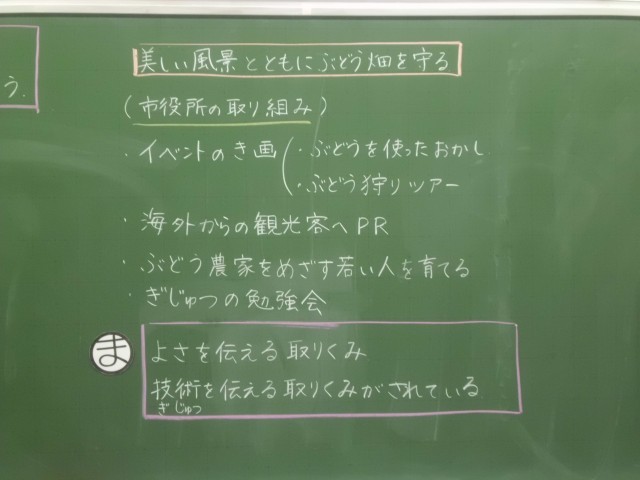 う。
美しい風景とともにぶどう畑を守る
(市役所の取り組み)
・イベントのき画(・ぶどうを使ったおかし
・ぶどう狩りツアー
・海外からの観光客へPR
・ぶどう農家をめざす若い人を育てる
・ぎじゅつの勉強会
ま
よさを伝える取りくみ
技術を伝える取りくみがされている
ぎじゅつ